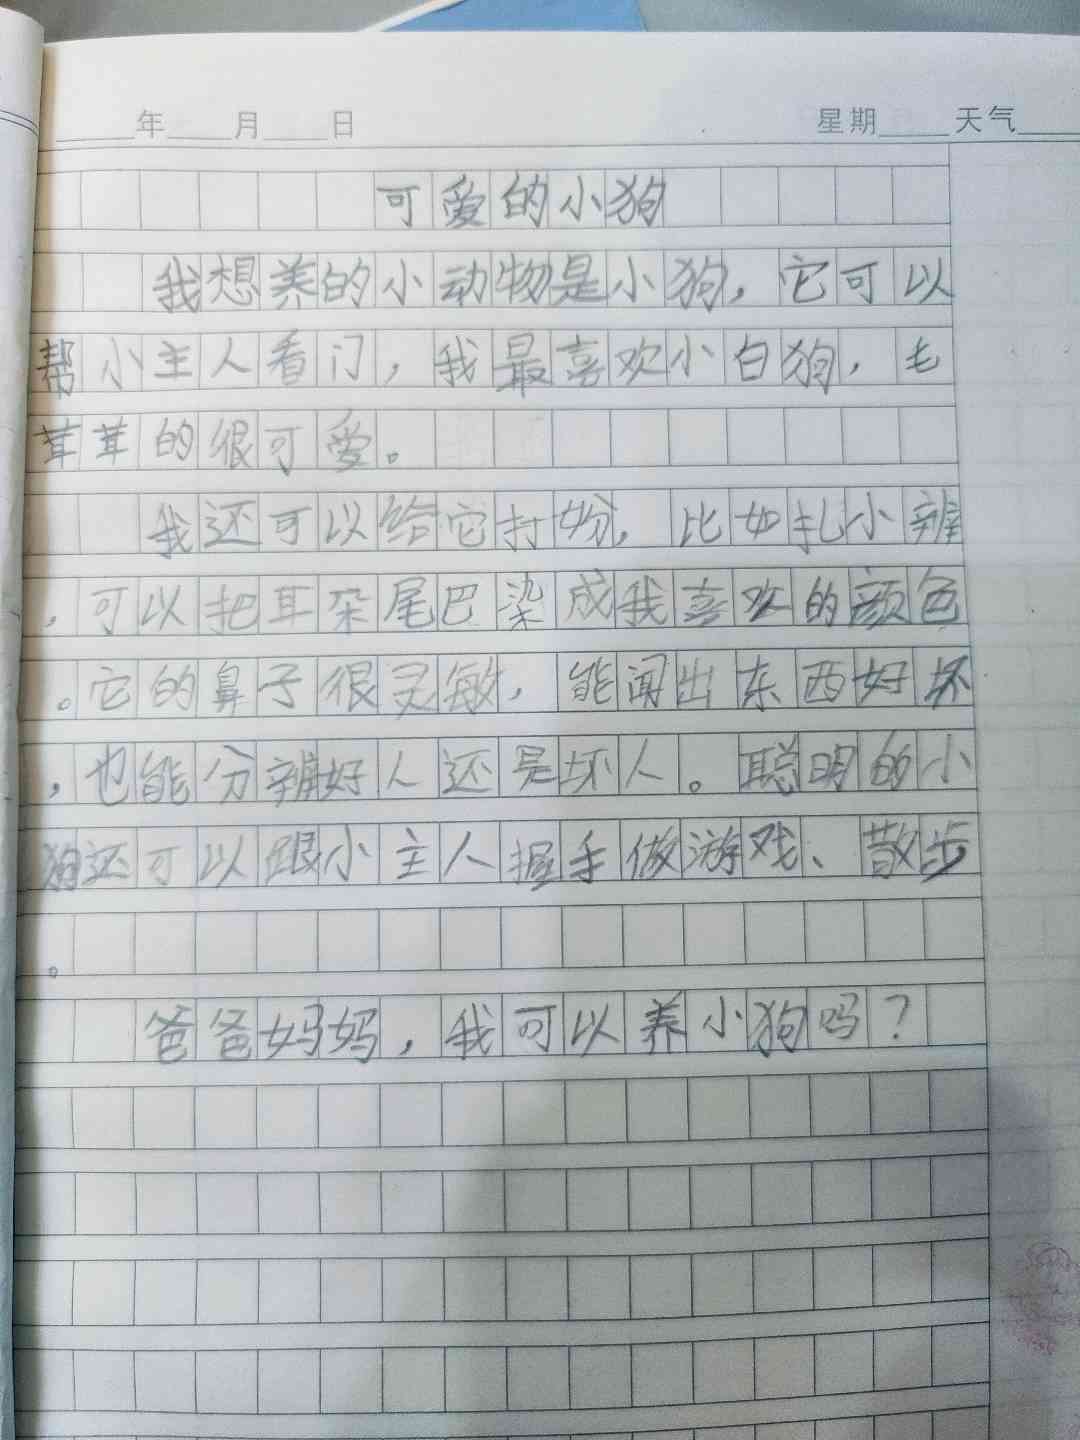 年 月 日 星期 天气
可爱的小狗
我想养的小动物是小狗，它可以
帮小主人看门，我最喜欢小白狗，毛
茸茸的很可爱。
我还可以给它打扮，比如扎小辨
，可以把耳朵尾巴染成我喜欢的颜色
。它的鼻子很灵敏，能闻出东西好坏
，也能分辨好人还是坏人。聪明的小
狗还可以跟小主人握手做游戏、散步
。
爸爸妈妈，我可以养小狗吗？